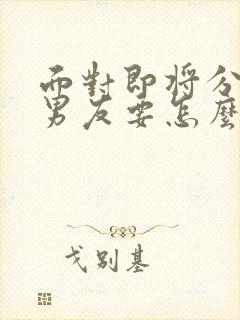 面對即將分
男友要怎麼
戈別基